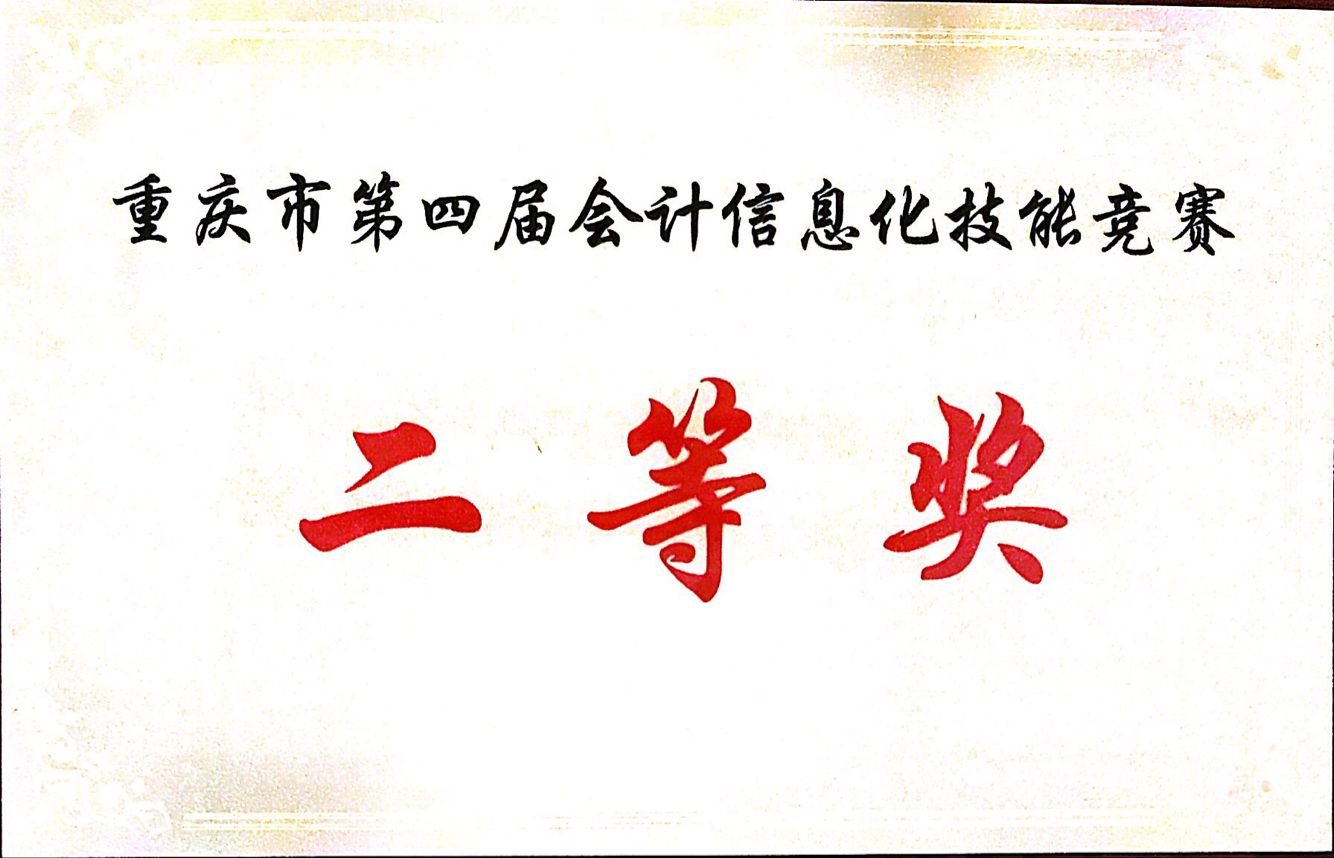 重庆市第四届会计信息化技能竞赛
二等奖